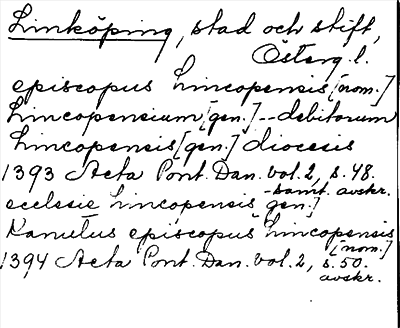 Linköping, stad och stift,
Österg.l.
episcopus Lincopensis [nom.]
Lincopensium [gen.] -- debitorum
Lincopensis [gen.] diocesis
1393 Acta Pont. Dan. vol. 2, s. 48.
- samt. avskr.
ecclesie Lincopensis gen.]
Kanutus episcopus Lincopensis
[nom.]
1394 Acta Pont. Dan. vol. 2, s. 50.
avskr.